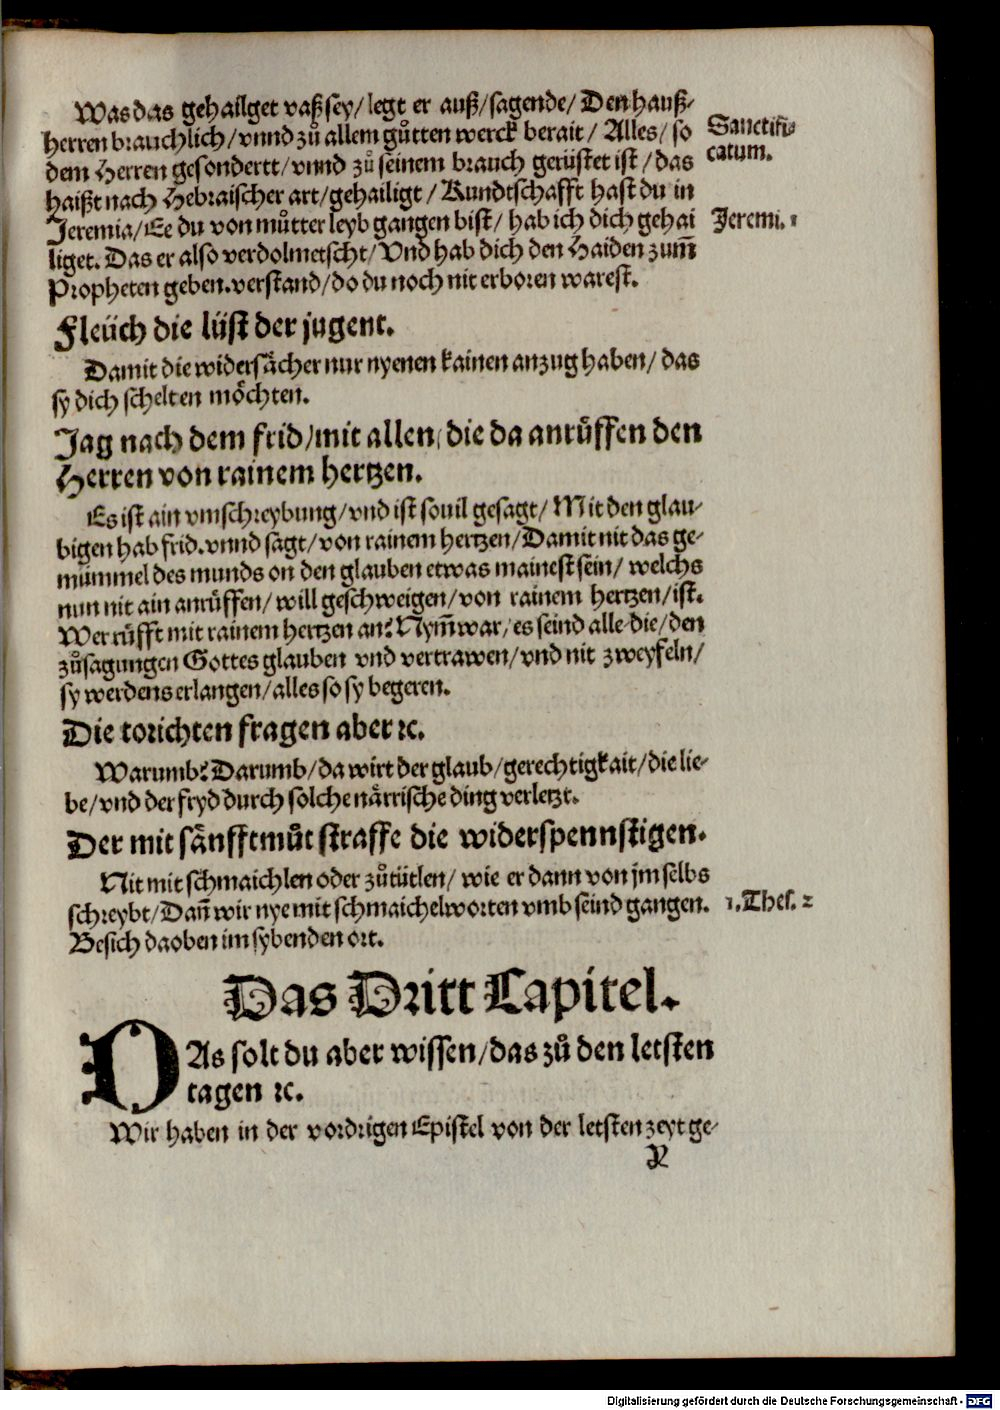 Was das gehailget vaß sey/ legt er auß/ sagende/ Den hauß-
herren brauchlich/ vnnd zů allem gůtten werck berait/ Alles/ so
dem Herren gesondertt/ vnnd zů seinem brauch gerüstet ist/ das
haißt nach Hebraischer art/ gehailigt/ Kundtschafft hast du in
Jeremia/ Ee du von můtter leyb gangen bist/ hab ich dich gehai
liget. Das er also verdolmetscht/ Vnd hab dich den Haiden zum̃
Propheten geben. verstand/ do du noch nit erboren warest.
Sanctifi-
catum.
Jeremi. 1
Fleüch die lüst der jugent.
Damit die widersächer nur nyenen kainen anzug haben/ das
sy dich schelten möchten.
Jag nach dem frid/ mit allen, die da anrůffen den
Herren von rainem hertzen.
Es ist ain vmschreybung/ vnd ist souil gesagt/ Mit den glau-
bigen hab frid. vnnd sagt/ von rainem hertzen/ Damit nit das ge-
mümmel des munds on den glauben etwas mainest sein/ welchs
nun nit ain anrůffen/ will geschweigen/ von rainem hertzen/ ist.
Wer růfft mit rainem hertzen an? Nym̃ war/ es seind alle die/ den
zůsagungen Gottes glauben vnd vertrawen/ vnd nit zweyfeln/
sy werdens erlangen/ alles so sy begeren.
Die torichten fragen aber ꝛc.
Warumb? Darumb/ da wirt der glaub/ gerechtigkait/ die lie-
be/ vnd der fryd durch solche närrische ding verletzt.
Der mit sänfftmůt straffe die widerspennstigen.
Nit mit schmaichlen oder zůtütlen/ wie er dann von jm selbs
schreybt/ Dañ wir nye mit schmaichelworten vmb seind gangen.
Besich daoben im sybenden ort.
1. Thes. 2
Das Dritt Capitel.
DAs solt du aber wissen/ das zů den letsten
tagen ꝛc.
Wir haben in der vordrigen Epistel von der letsten zeyt ge-
Digitalisierung gefördert durch die Deutsche Forschungsgemeinschaft - DFG